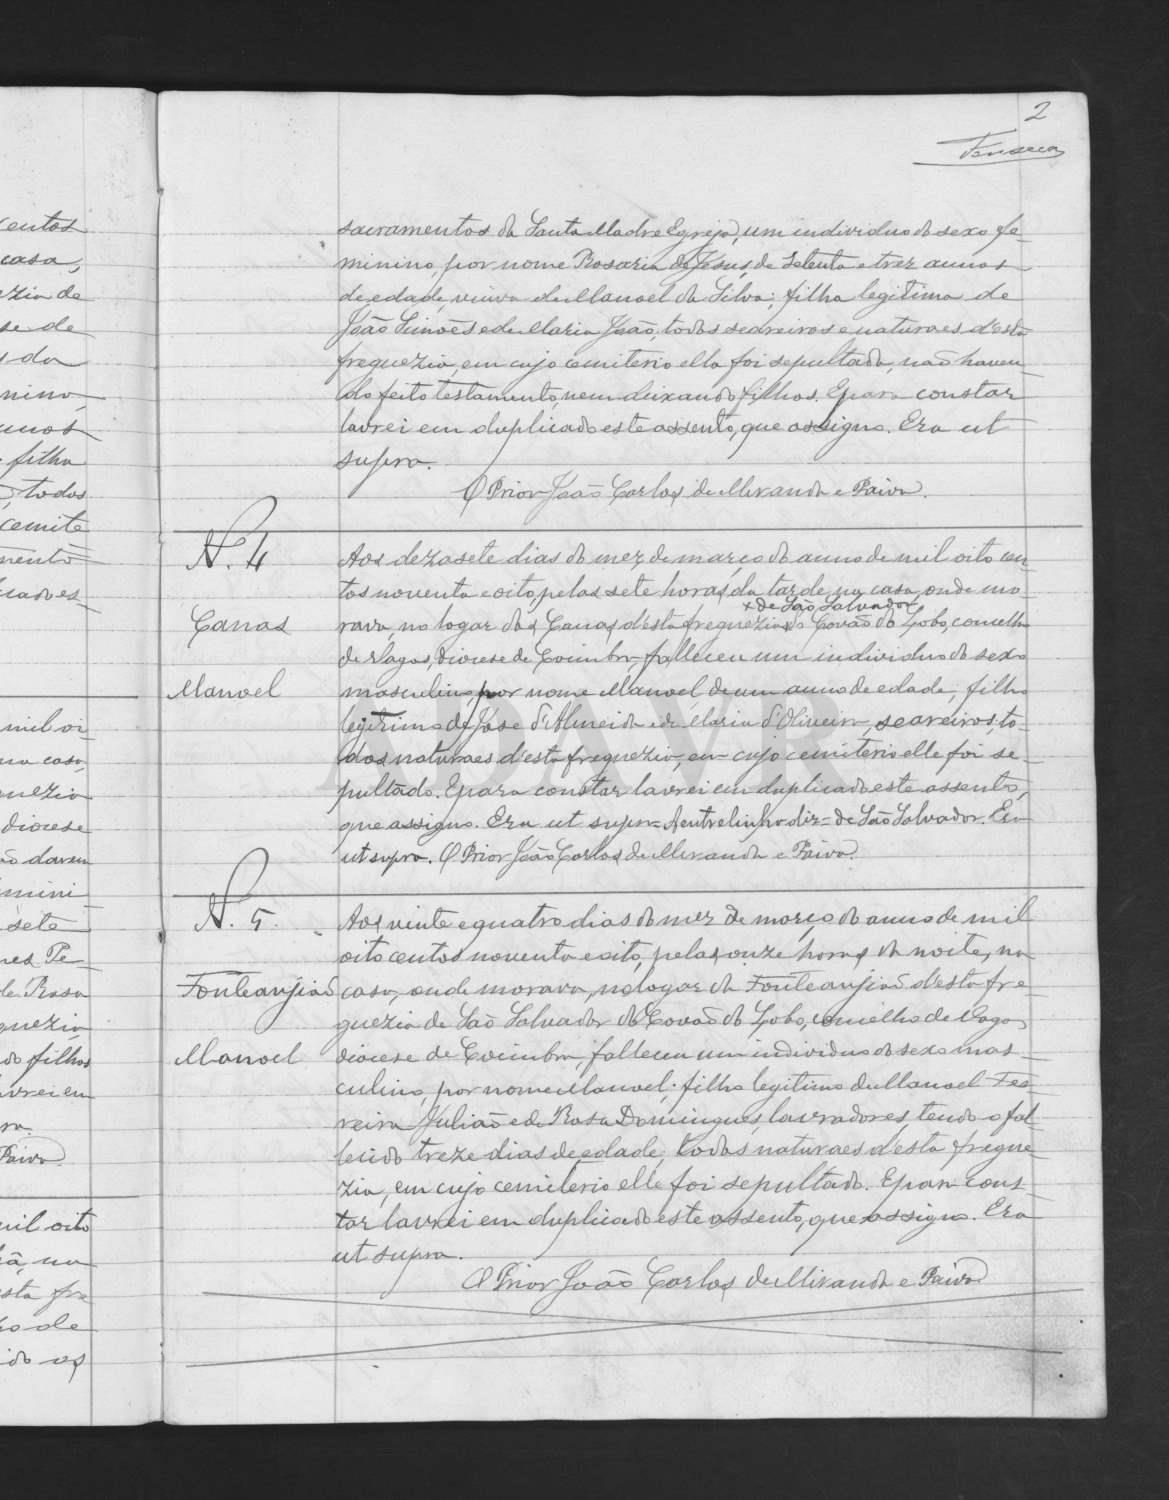 2
Fonseca
sacramentos da Santa Madre Egreja, um individuo do sexo fe-
minino, por nome Rosaria de Jesus, de setenta e trez annos
de edade, viuva de Manoel da Silva; filha legitima de
João Simões e de Maria João, todos seareiros e naturaes d'esta
freguezia, em cujo cemiterio ella foi sepultada, não haven-
do feito testamento, nem deixando filhos. E para constar
lavrei em duplicado este assento, que assigno. Era ut
supra.
O Prior João Carlos de Miranda e Paiva.
N. 4
Canas
Manoel
Aos dezasete dias do mez de março do anno de mil oito cen-
tos noventa e oito, pelas sete horas da tarde, na casa, onde mo-
x de São Salvador
rava, no logar das Canas d'esta freguezia do Covão do Lobo, concelho
de Vagos, diocese de Coimbra falleceu um individuo do sexo
masculino por nome Manoel, de um anno de edade; filho
legitimo de José d'Almeida e de Maria d'Oliveira, seareiros, to-
dos naturaes d'esta freguezia, em cujo cemiterio elle foi se-
pultado. E para constar lavrei em duplicado este assento,
que assigno. Era ut supra = A entrelinha diz = de São Salvador. Era
ut supra. O Prior João Carlos de Miranda e Paiva.
N. 5.
Fonteanjião
Manoel
Aos vinte e quatro dias do mez de março do anno de mil
oito centos noventa e oito, pelas onze horas da noite, na
casa, onde morava, no logar da Fonteanjião d'esta fre-
guezia de São Salvador do Covão do Lobo, concelho de Vagos
diocese de Coimbra, falleceu um individuo do sexo mas-
culino, por nome Manoel; filho legitimo de Manoel Fer-
reira Julião e de Rosa Domingues, lavradores, tendo o fal-
lecido treze dias de edade, todos naturaes d'esta fregue-
zia, em cujo cemiterio elle foi sepultado. E para cons-
tar lavrei em duplicado este assento, que assigno. Era
ut supra.
O Prior João Carlos de Miranda e Paiva
ADAVR